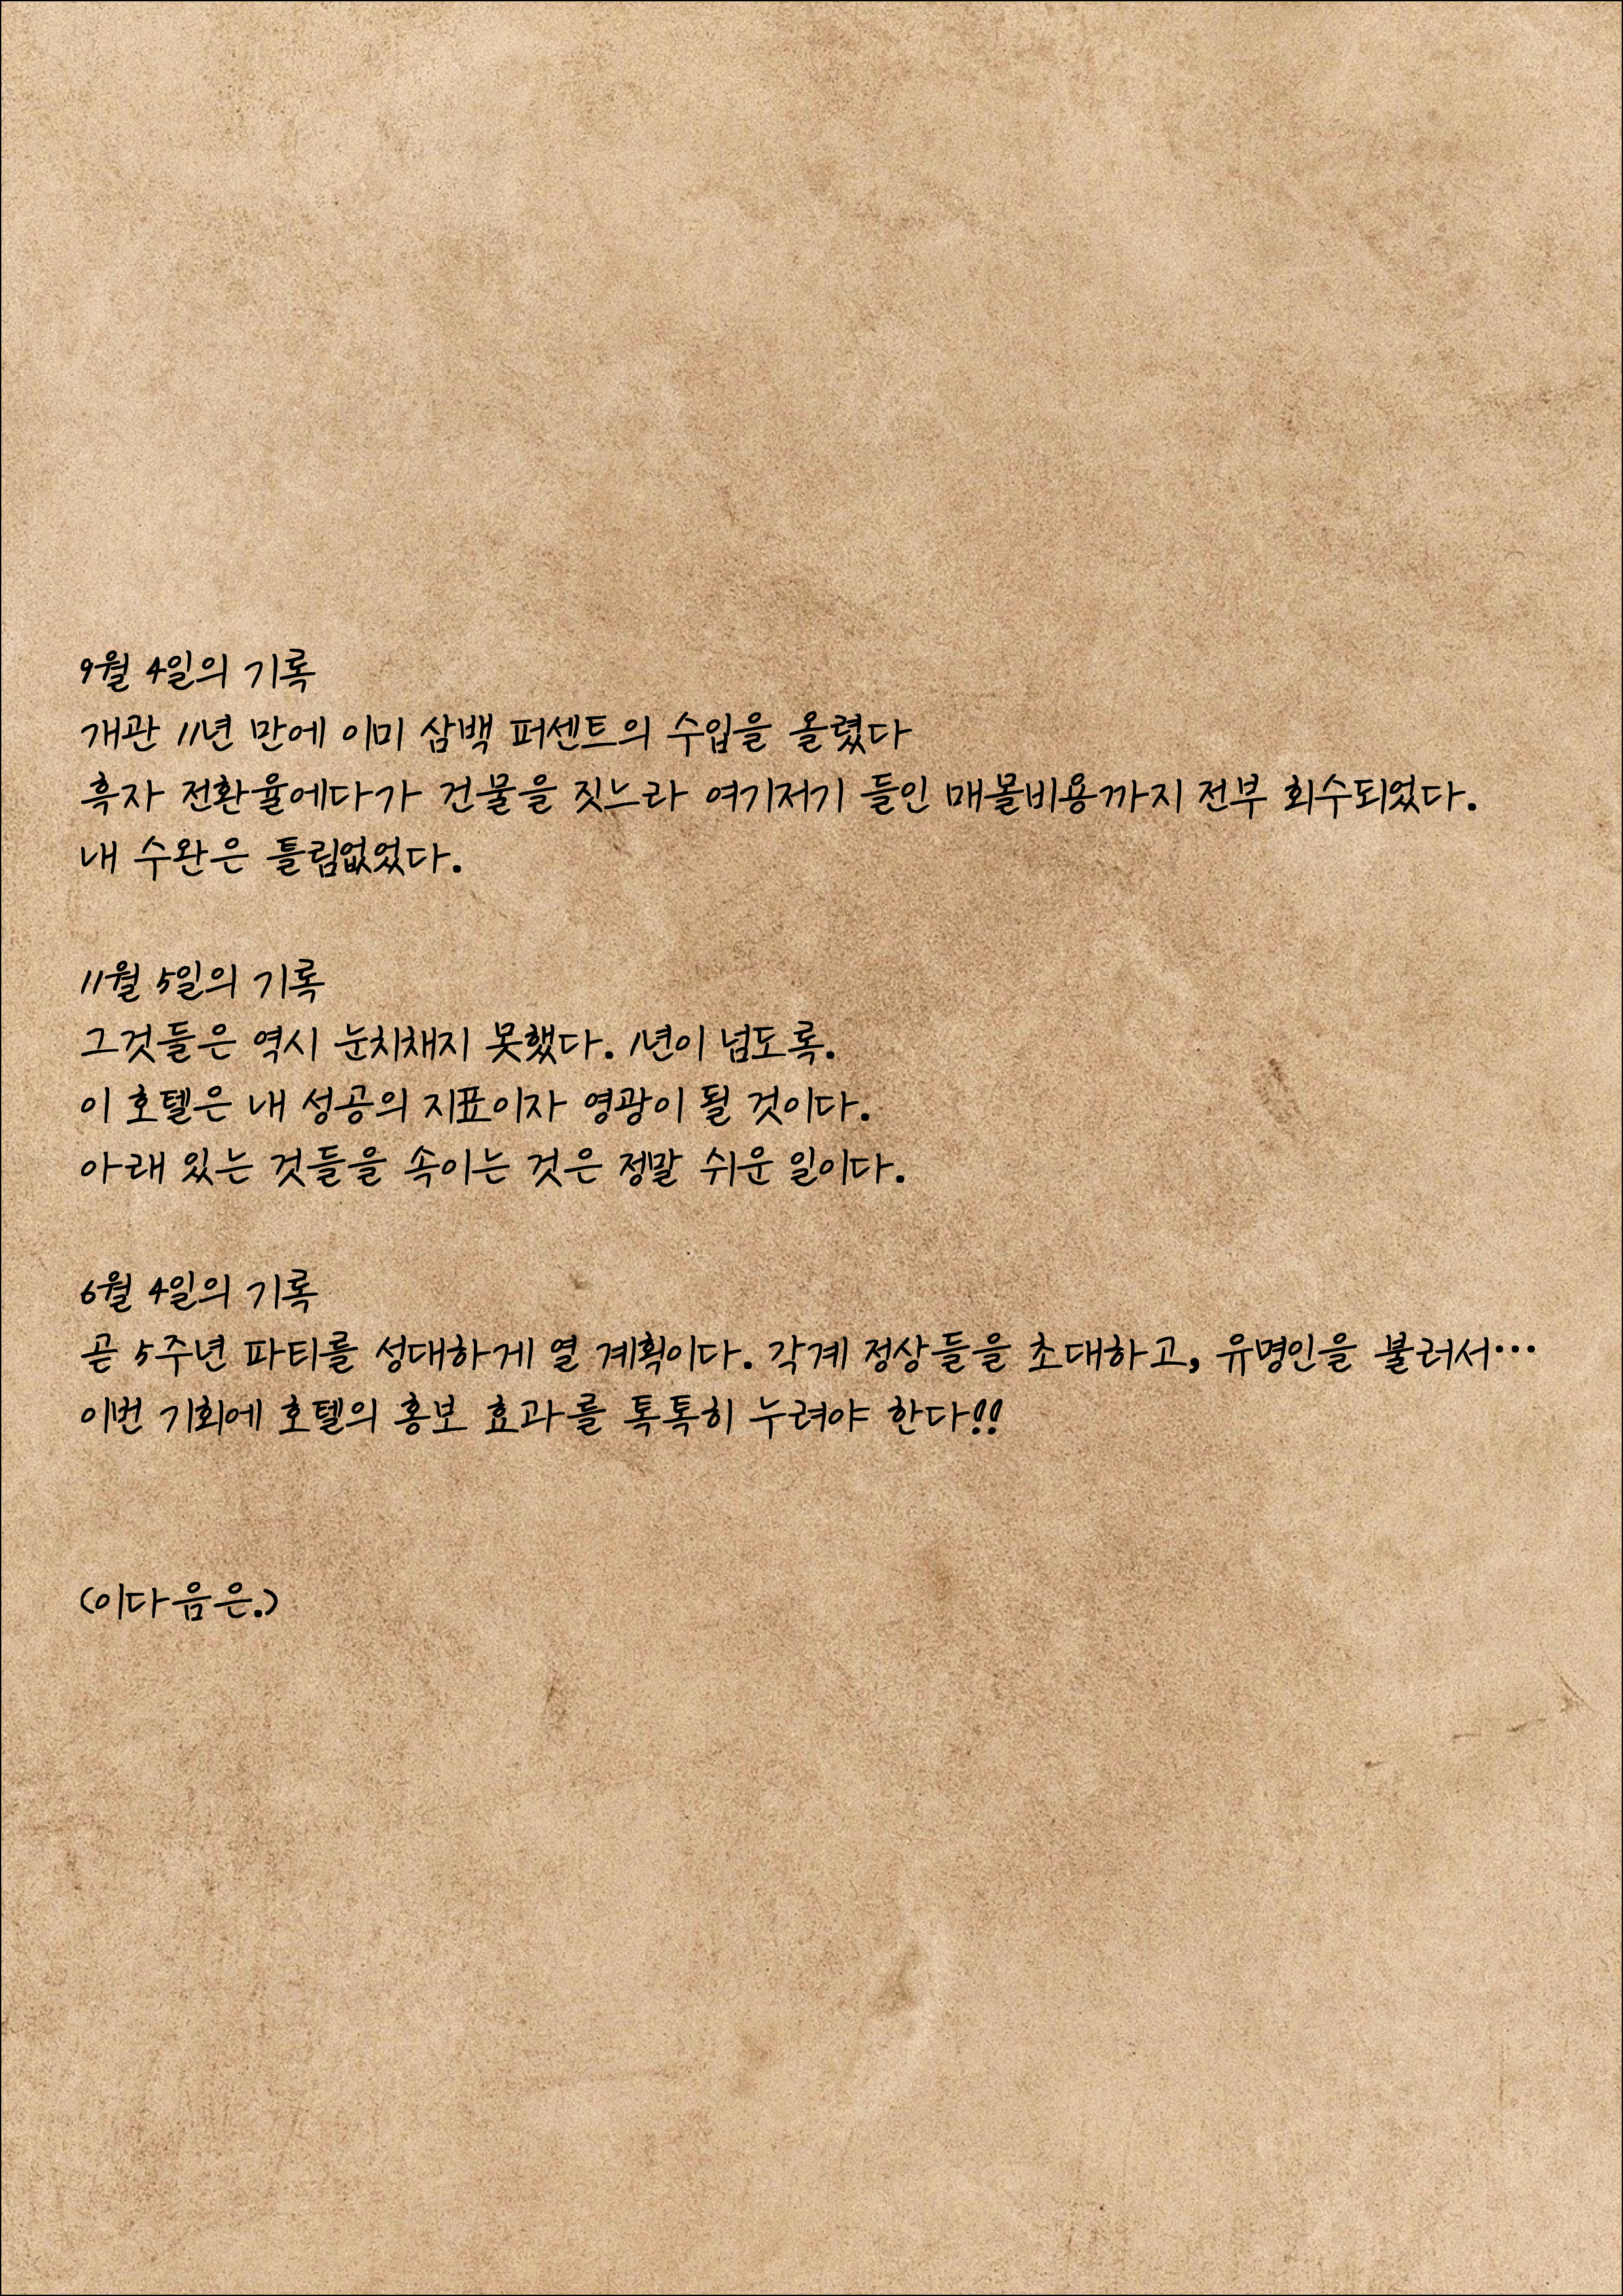 9월 4일의 기록
개관 11년 만에 이미 삼백 퍼센트의 수입을 올렸다
흑자 전환율에다가 건물을 짓느라 여기저기 들인 매몰비용까지 전부 회수되었다.
내 수완은 틀림없었다.
11월 5일의 기록
그것들은 역시 눈치채지 못했다. 1년이 넘도록.
이 호텔은 내 성공의 지표이자 영광이 될 것이다.
아래 있는 것들을 속이는 것은 정말 쉬운 일이다.
6월 4일의 기록
곧 5주년 파티를 성대하게 열 계획이다. 각계 정상들을 초대하고, 유명인을 불러서…
이번 기회에 호텔의 홍보 효과를 톡톡히 누려야 한다!!
(이다음은.)